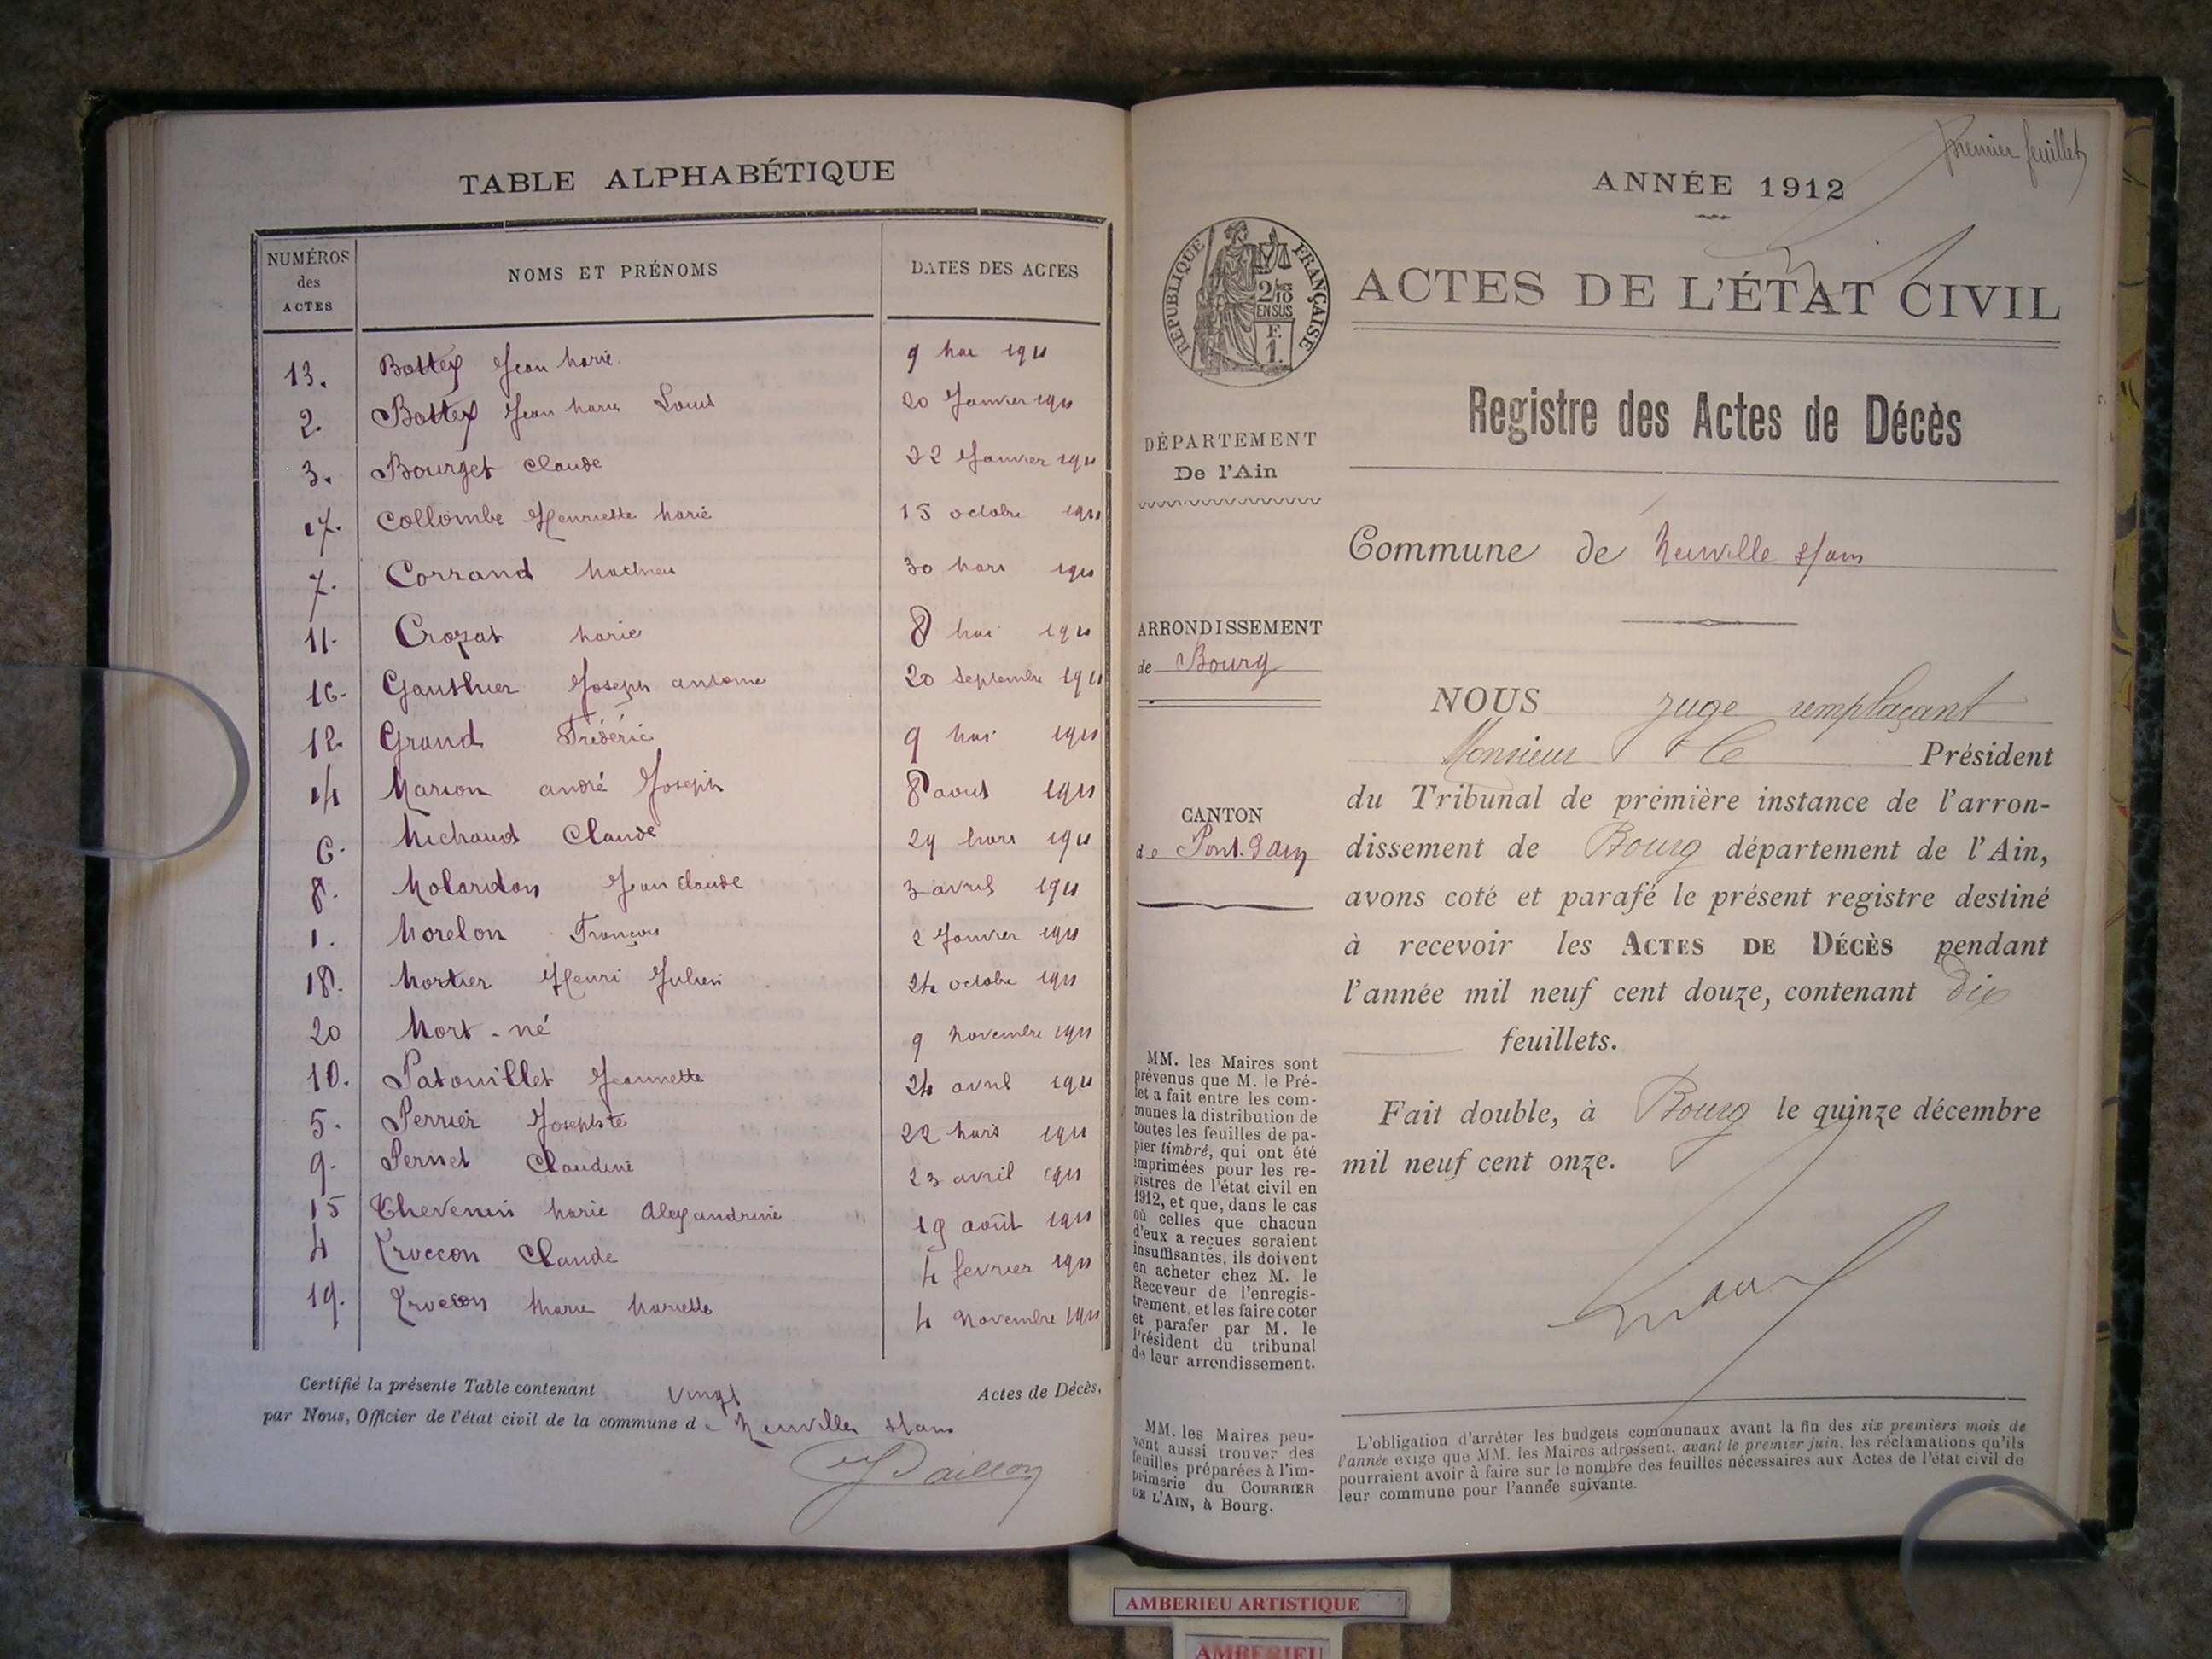 TABLE ALPHABÉTIQUE
NUMÉROS des ACTES NOMS ET PRÉNOMS DATES DES ACTES
13. Bottex Jean Marie 9 Mai 1911
2. Bottex Jean Marie Louis 20 Janvier 1911
3. Bourget Claude 22 Janvier 1911
17. Collombe Henriette Marie 15 octobre 1911
7. Corrand Mathieu 30 Mars 1911
11. Crozat Marie 8 Mai 1911
16. Gauthier Joseph antoine 20 Septembre 1911
12. Grand Frédéric 9 Mai 1911
14 Marion andré Joseph 8 aout 1911
6. Michaud Claude 29 Mars 1911
8. Molardon Jean Claude 3 avril 1911
1. Morelon François 2 Janvier 1911
18. Mortier Henri Julien 24 octobre 1911
20 Mort-né 9 Novembre 1911
10. Patouillet Jeannette 24 avril 1911
5. Perrier Josephte 22 Mars 1911
9. Pernet Claudine 23 avril 1911
15 Thevenin Marie Alexandrine 19 août 1911
4 Troccon Claude 4 fevrier 1911
19. Troccon Marie Mariette 4 Novembre 1911
Certifié la présente Table contenant Vingt Actes de Décès,
par Nous, Officier de l'état civil de la commune de Neuville s/ain
ANNÉE 1912
Premier feuillet
ACTES DE L'ÉTAT CIVIL
RÉPUBLIQUE FRANÇAISE
2/10
EN SUS
F.
1.
Registre des Actes de Décès
DÉPARTEMENT
De l'Ain
Commune de Neuville s/ain
ARRONDISSEMENT
de Bourg
CANTON
de Pont-d'ain
NOUS juge remplaçant
Monsieur le Président
du Tribunal de première instance de l'arron-
dissement de Bourg département de l'Ain,
avons coté et parafé le présent registre destiné
à recevoir les ACTES DE DÉCÈS pendant
l'année mil neuf cent douze, contenant dix
feuillets.
Fait double, à Bourg le quinze décembre
mil neuf cent onze.
MM. les Maires sont
prévenus que M. le Pré-
fet a fait entre les com-
munes la distribution de
toutes les feuilles de pa-
pier timbré, qui ont été
imprimées pour les re-
gistres de l'état civil en
1912, et que, dans le cas
où celles que chacun
d'eux a reçues seraient
insuffisantes, ils doivent
en acheter chez M. le
Receveur de l'enregis-
trement, et les faire coter
et parafer par M. le
Président du tribunal
de leur arrondissement.
MM. les Maires peu-
vent aussi trouver des
feuilles préparées à l'im-
primerie du COURRIER
DE L'AIN, à Bourg.
L'obligation d'arrêter les budgets communaux avant la fin des six premiers mois de
l'année exige que MM. les Maires adressent, avant le premier juin, les réclamations qu'ils
pourraient avoir à faire sur le nombre des feuilles nécessaires aux Actes de l'état civil de
leur commune pour l'année suivante.
AMBERIEU ARTISTIQUE
AMBERIEU